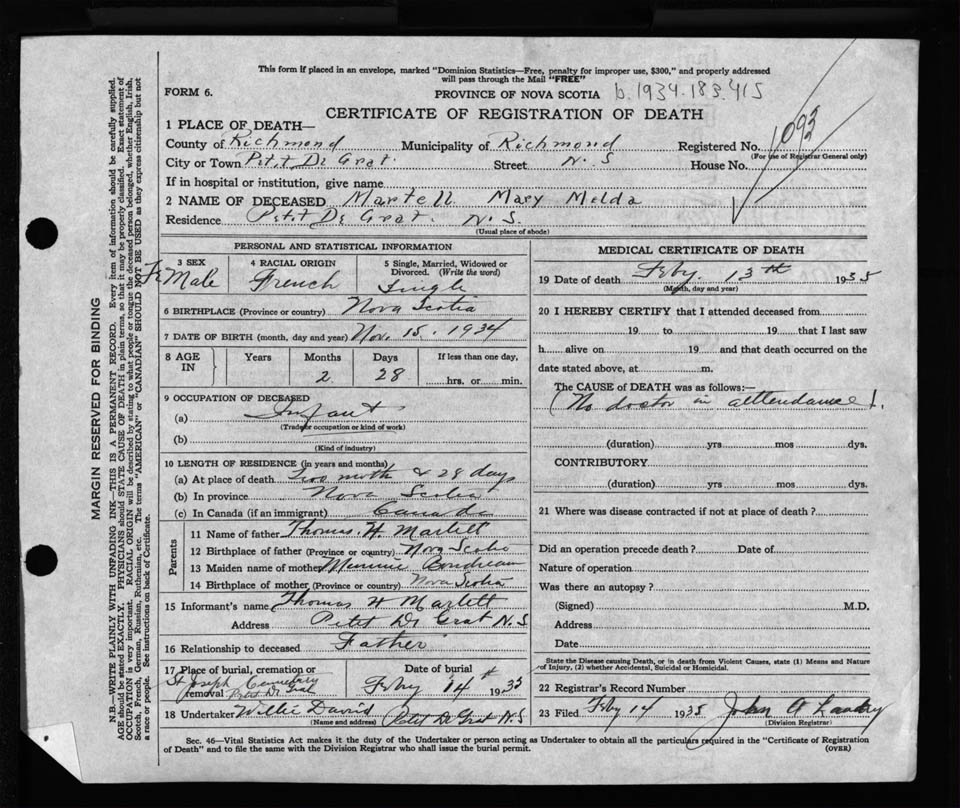 This form if placed in an envelope, marked "Dominion Statistics—Free, penalty for improper use, $300," and properly addressed
will pass through the Mail "FREE"
FORM 6.
PROVINCE OF NOVA SCOTIA b.1934.183.415
CERTIFICATE OF REGISTRATION OF DEATH
1093
1 PLACE OF DEATH—
County of Richmond Municipality of Richmond Registered No.
(For use of Registrar General only)
City or Town Petit De Grat. Street N.S House No.
If in hospital or institution, give name
2 NAME OF DECEASED Martell Mary Melda
Residence Petit De Grat. N.S.
(Usual place of abode)
PERSONAL AND STATISTICAL INFORMATION
3 SEX 4 RACIAL ORIGIN 5 Single, Married, Widowed or
Divorced. (Write the word)
Fe Male French Single
6 BIRTHPLACE (Province or country) Nova Scotia
7 DATE OF BIRTH (month, day and year) Nov. 15. 1934
8 AGE IN Years Months Days If less than one day,
2 28 hrs. or min.
9 OCCUPATION OF DECEASED
(a) Infant
(Trade or occupation or kind of work)
(b)
(Kind of industry)
10 LENGTH OF RESIDENCE (in years and months)
(a) At place of death Two month & 28 days
(b) In province Nova Scotia
(c) In Canada (if an immigrant) Canada
Parents
11 Name of father Thomas. H. Martell
12 Birthplace of father (Province or country) Nova Scotia
13 Maiden name of mother Minnie Boudreau
14 Birthplace of mother (Province or country) Nova Scotia
15 Informant's name Thomas H Martell
Address Petit De Grat N.S
16 Relationship to deceased Father
17 Place of burial, cremation or
removal St Joseph Cemetery
Petit De Grat
Date of burial
Feby 14th 1935
18 Undertaker Willie David Petit De Grat N.S
(Name and address)
MEDICAL CERTIFICATE OF DEATH
19 Date of death Feby. 13th 1935
(Month, day and year)
20 I HEREBY CERTIFY that I attended deceased from
19 to 19 that I last saw
h alive on 19 and that death occurred on the
date stated above, at m.
The CAUSE OF DEATH was as follows:—
(No doctor in attendance).
(duration) yrs mos dys.
CONTRIBUTORY
(duration) yrs mos dys.
21 Where was disease contracted if not at place of death?
Did an operation precede death? Date of
Nature of operation
Was there an autopsy?
(Signed) M.D.
Address
Date
State the Disease causing Death, or in death from Violent Causes, state (1) Means and Nature
of Injury, (2) whether Accidental, Suicidal or Homicidal.
22 Registrar's Record Number
23 Filed Feby 14 1935 John A Landry
(Division Registrar)
Sec. 46—Vital Statistics Act makes it the duty of the Undertaker or person acting as Undertaker to obtain all the particulars required in the "Certificate of Registration
of Death" and to file the same with the Division Registrar who shall issue the burial permit. (OVER)
MARGIN RESERVED FOR BINDING
N.B.—WRITE PLAINLY WITH UNFADING INK—THIS IS A PERMANENT RECORD. Every item of information should be carefully supplied.
AGE should be stated EXACTLY. PHYSICIANS should STATE CAUSE OF DEATH in plain terms, so that it may be properly classified. Exact statement of
OCCUPATION is very important. RACIAL ORIGIN will be described by stating to what people or tongue the deceased person belonged, whether English, Irish,
Scotch, French, German, Russian, Ruthenian, etc. The terms "AMERICAN" or "CANADIAN" SHOULD NOT BE USED as they express citizenship but not
a race or people. See instructions on back of Certificate.